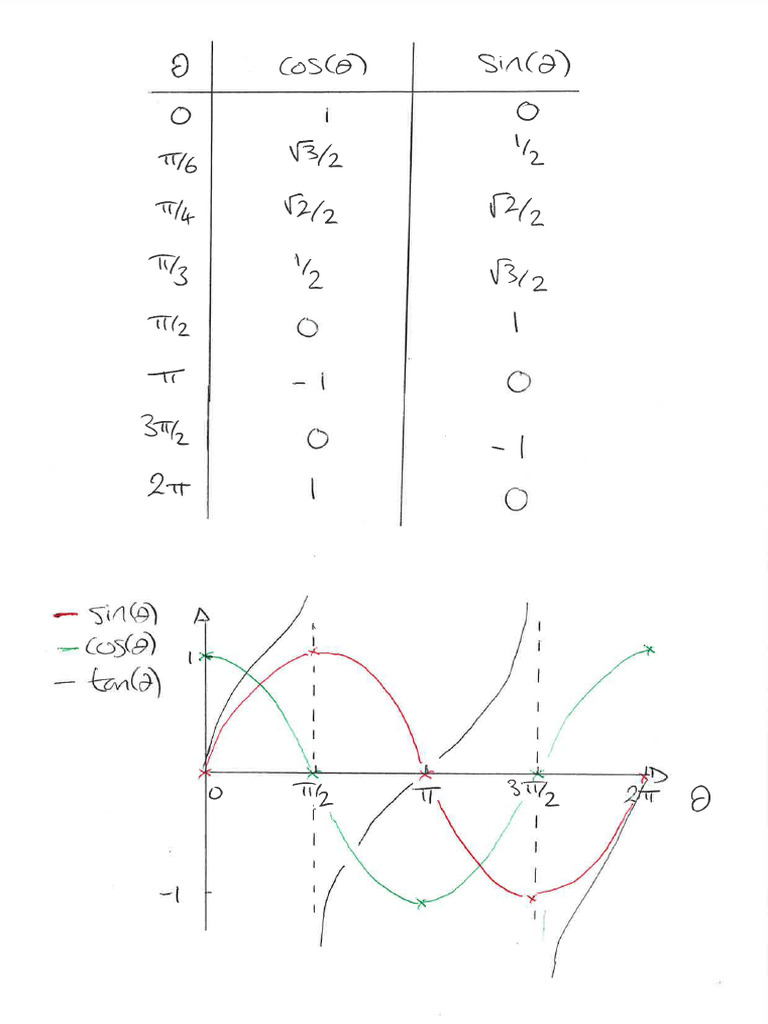 θ cos(θ) sin(θ)
0 1 0
π/6 √3/2 1/2
π/4 √2/2 √2/2
π/3 1/2 √3/2
π/2 0 1
π -1 0
3π/2 0 -1
2π 1 0
sin(θ)
cos(θ)
tan(θ)
1
0 π/2 π 3π/2 2π θ
-1